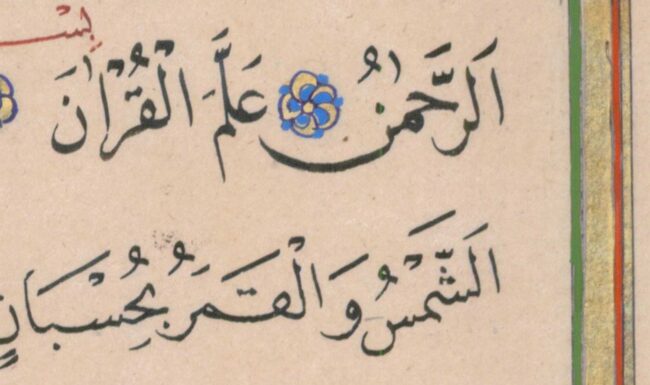 اَلرَّحْمٰنُ عَلَّمَ الْقُرْاٰنَ
اَلشَّمْسُ وَالْقَمَرُ بِحُسْبَانٍ